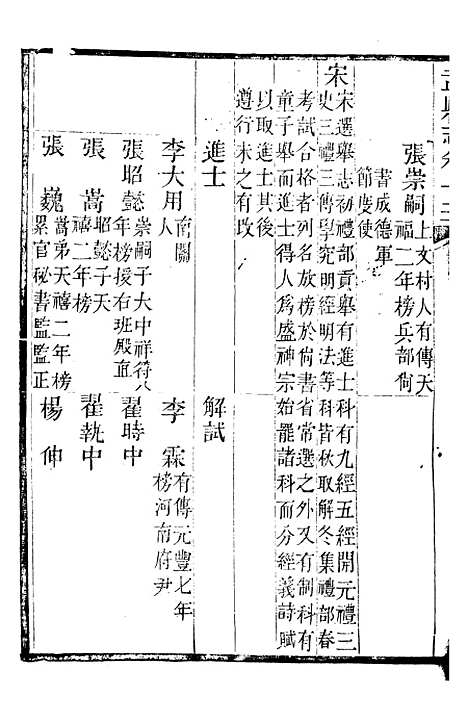 張崇嗣上文村人有傳天
禧二年榜兵部尙
書成德軍
節度使
宋
宋選舉志初禮部貢舉有進士科有九經五經開元禮三
史三禮三傳學究明經明法等科皆秋取解冬集禮部春
考試合格者列名放榜於尙書省常選之外又有制科有
童子舉而進士得人爲盛神宗始罷諸科而分經義詩賦
以取進士其後
遵行未之有改
進士
解試
李大用南關
人
李霖有傳元豐七年
榜河南府尹
張昭懿崇嗣子大中祥符八
年榜授右班殿直
翟時中
張嵩昭懿子天
禧二年榜
翟執中
張巍嵩弟天禧二年榜
累官秘書監監正
楊伸